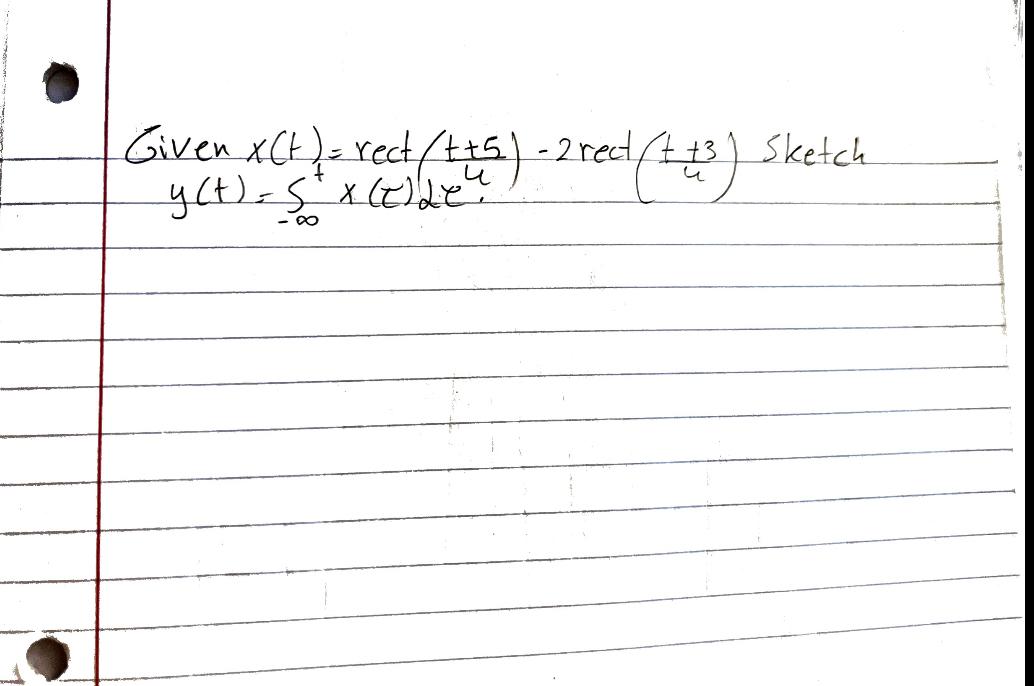 Given x(t) = rect((t+5)/4) - 2rect((t+3)/4) Sketch
y(t) = ∫_{-∞}^{t} x(τ)dτ.